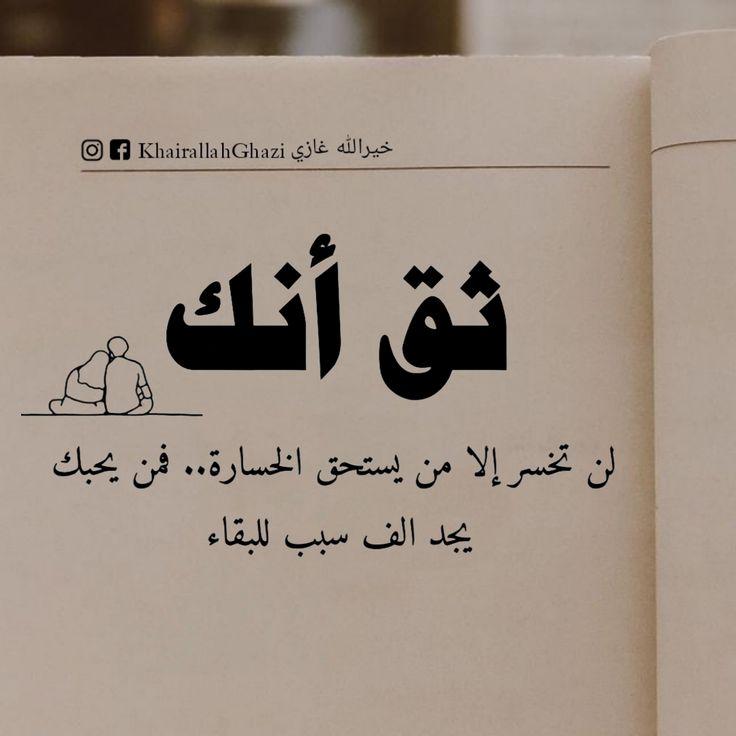 KhairallahGhazi خيرالله غازي
ثق أنك
لن تخسر إلا من يستحق الخسارة.. فمن يحبك
يجد الف سبب للبقاء